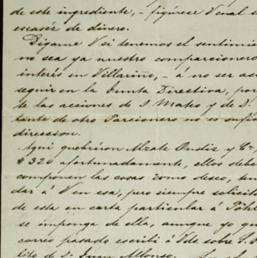 de este ingrediente,- figúrese V cual s
escasés de dinero.
Dígame V si tenemos el sentimi
no sea ya nuestro comparcionero
interés en Villarino,- a no ser as
seguir en la Junta Directiva, por
te las acciones de S Mateo y de S.
tante de otro Parcionero no es sufi
direccion.
Aqui quebraron Alzate Ondiz y Cª,
$320 afortunadamente, ellos debe
componen las cosas como deseo, ten
dar á V en esa, pero siempre solicit
de esta en carta particular á
se imponga de ella, aunque yo q
correo pasado escribí á Vde sobre
lito de D. Juan Alfonso.